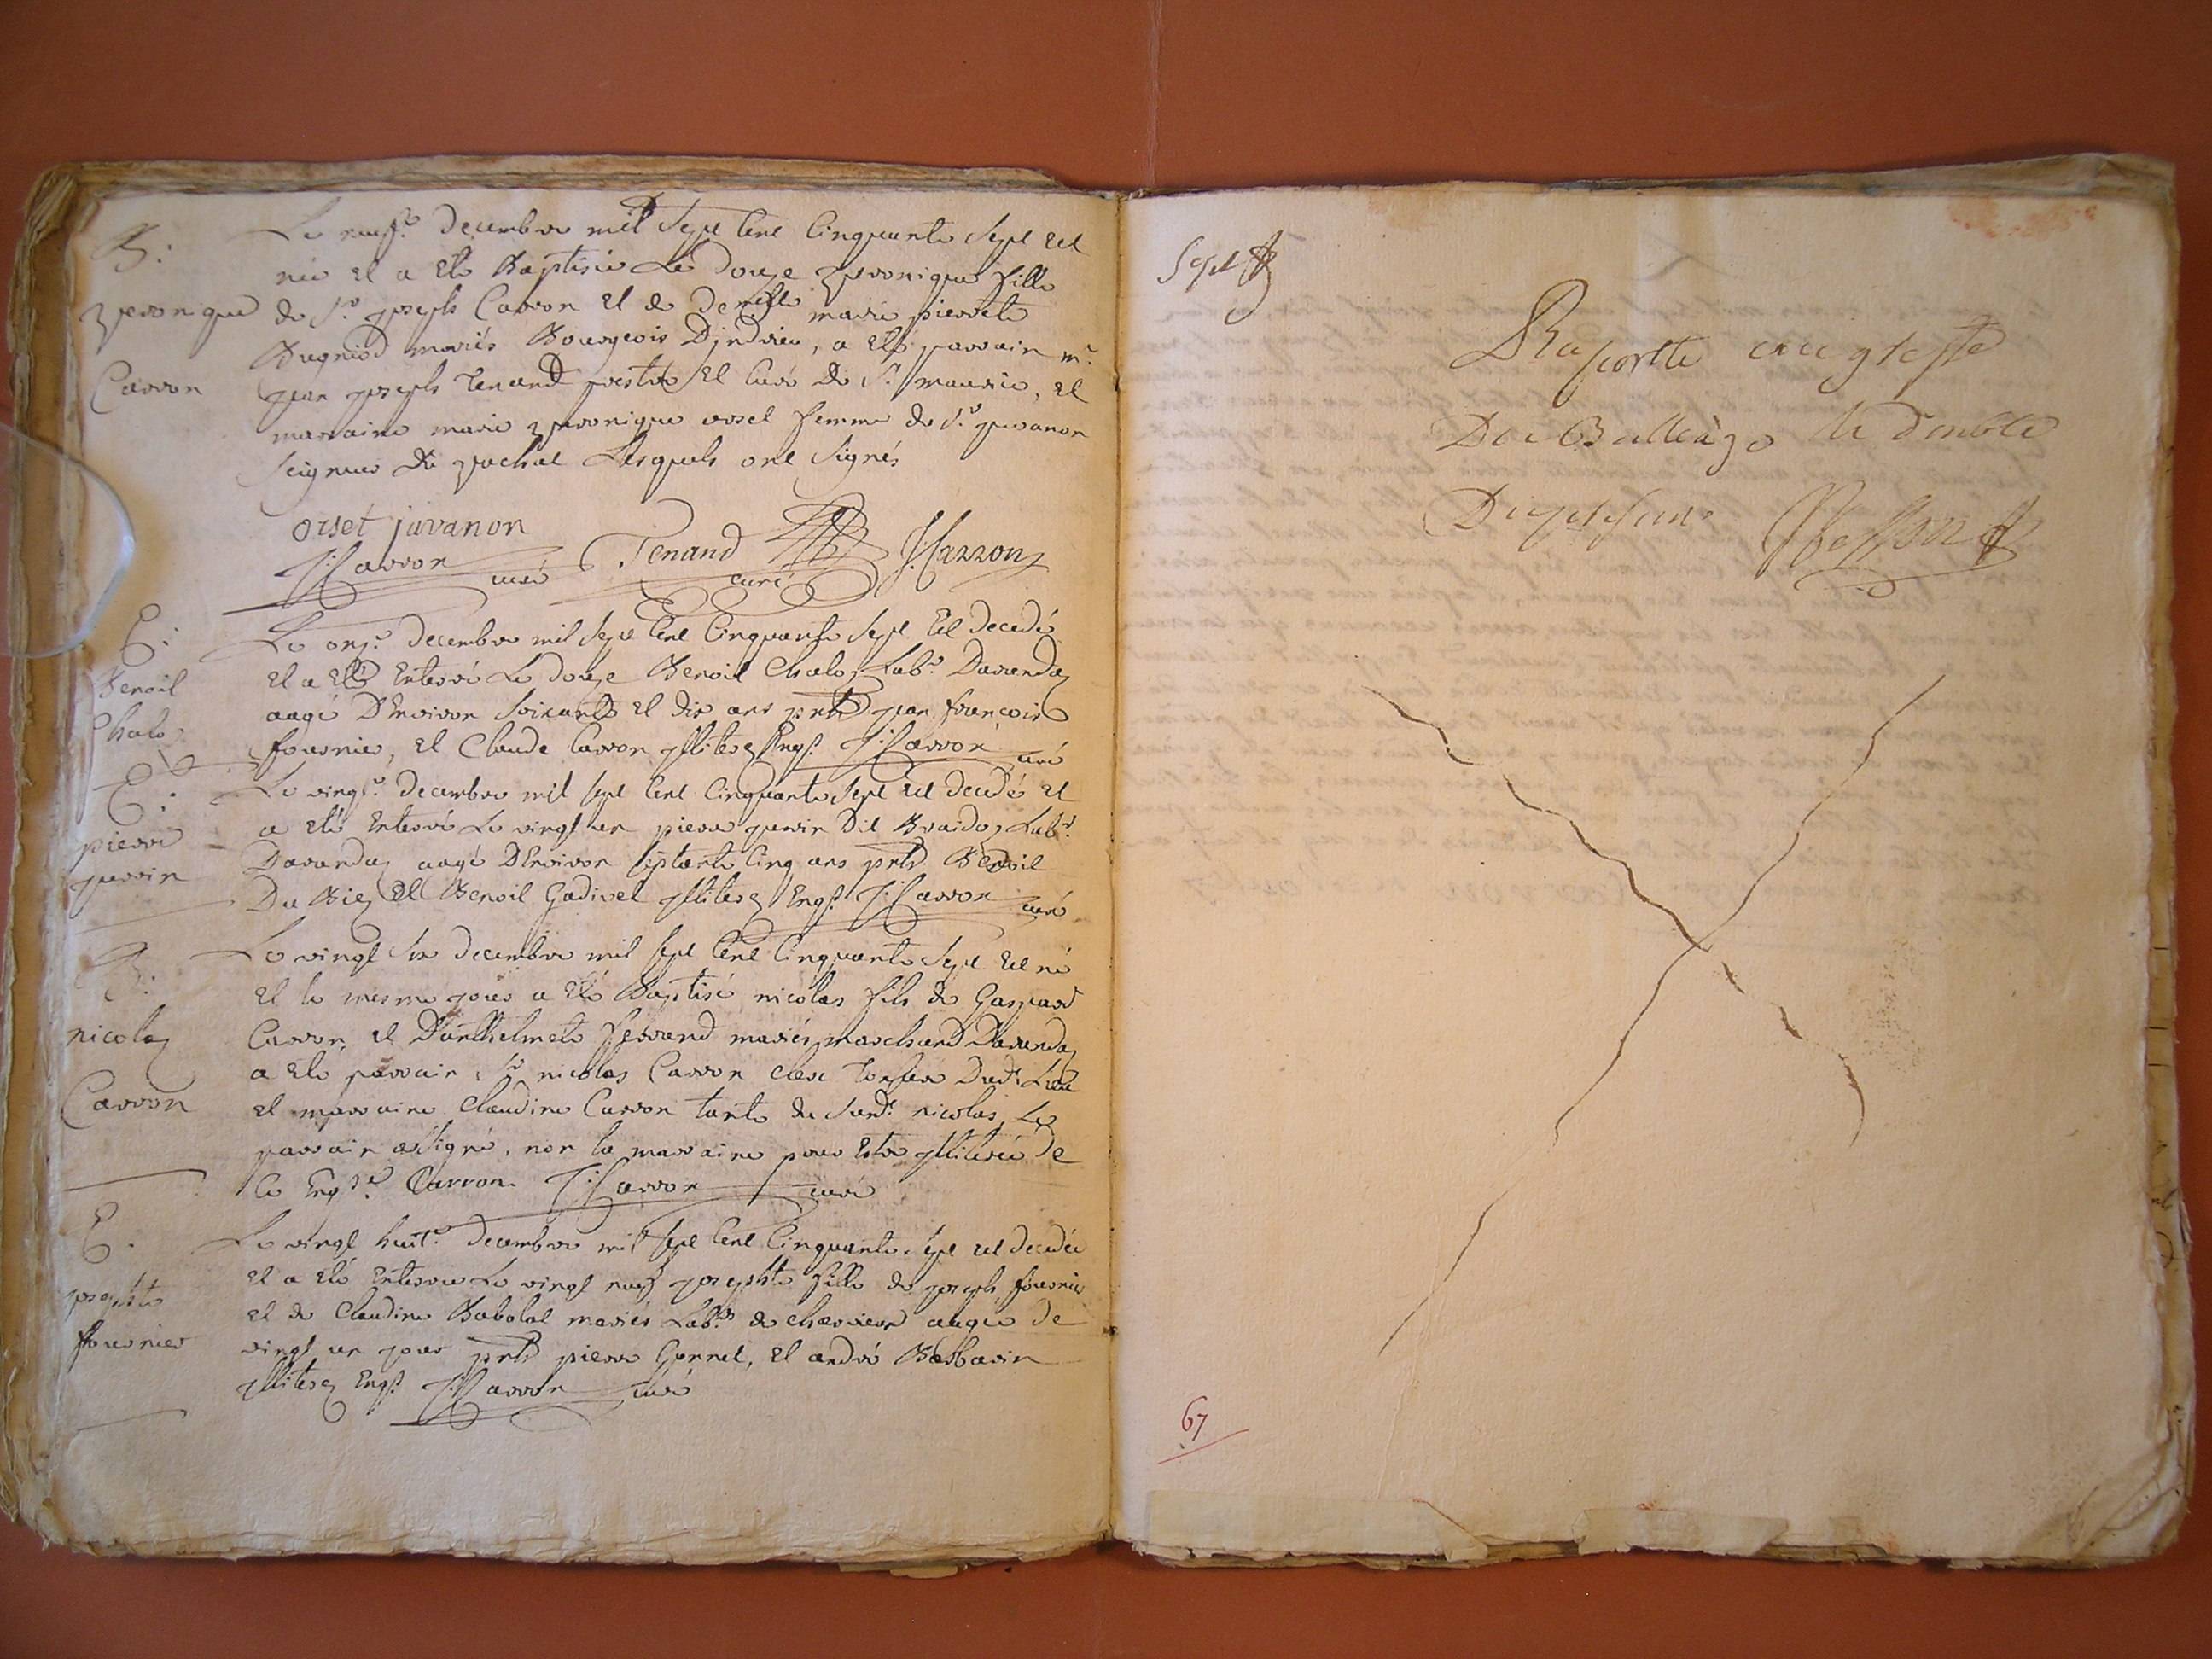 B:
veronique
Carron
Le neufe decembre mil sept cent cinquante sept est
née et a eté Baptisée Le douze veronique fille
de Sr joseph Carron et de demlle marie pierrete
Bugniod mariés Bourgeois Djndrieu, a eté parrain mr
jean joseph Tenand prestre et curé de St maurice, et
marraine marie veronique orset femme de Sr juvanon
seigneur du vachat Lesquels ont signés
orset juvanon
J: Carron curé Tenand curé J: Carron
E:
Benoit
Chalo
Le onze decembre mil sept cent cinquante sept est decedé
et a eté enterré Le douze Benoit Chaloz Labr Davandaz
aagé D'environ soixante et dix ans pnts jean françois
fournier, et Claude Carron jlliterez Enqs J: Carron curé
E:
pierre
juvin
Le vingte decembre mil sept cent cinquante sept est decedé et
a eté enterré Le vingt un pierre Dit Labr
Davandaz aagé D'environ septante cinq ans pnts Benoit
Du Biez et Benoit Gadivet jlliterez Enqs J: Carron curé
B:
nicolas
Carron
Le vingt six decembre mil sept cent cinquante sept est né
et le mesme jour a eté Baptisé nicolas fils de Gaspard
Carron, et D'anthelmete ferrand mariés marchand Davandaz
a eté parrain Sr nicolas Carron clerc Tonsuré Dudt Lieu
et marraine Claudine Carron tante du susdt nicolas, Le
parrain a signé, non la marraine pour estre jlliterée de
ce Enqse Carron J: Carron curé
E:
josephte
fournier
Le vingt huite decembre mil sept cent cinquante sept est decedée
et a eté enterrée Le vingt neuf josephte fille de joseph fournier
et de Claudine Babolat mariés Labrs de aagée de
vingt un jour pnts pierre Gonnet, et andré Barbarin
jlliterez Enqs J: Carron curé
Sept
67